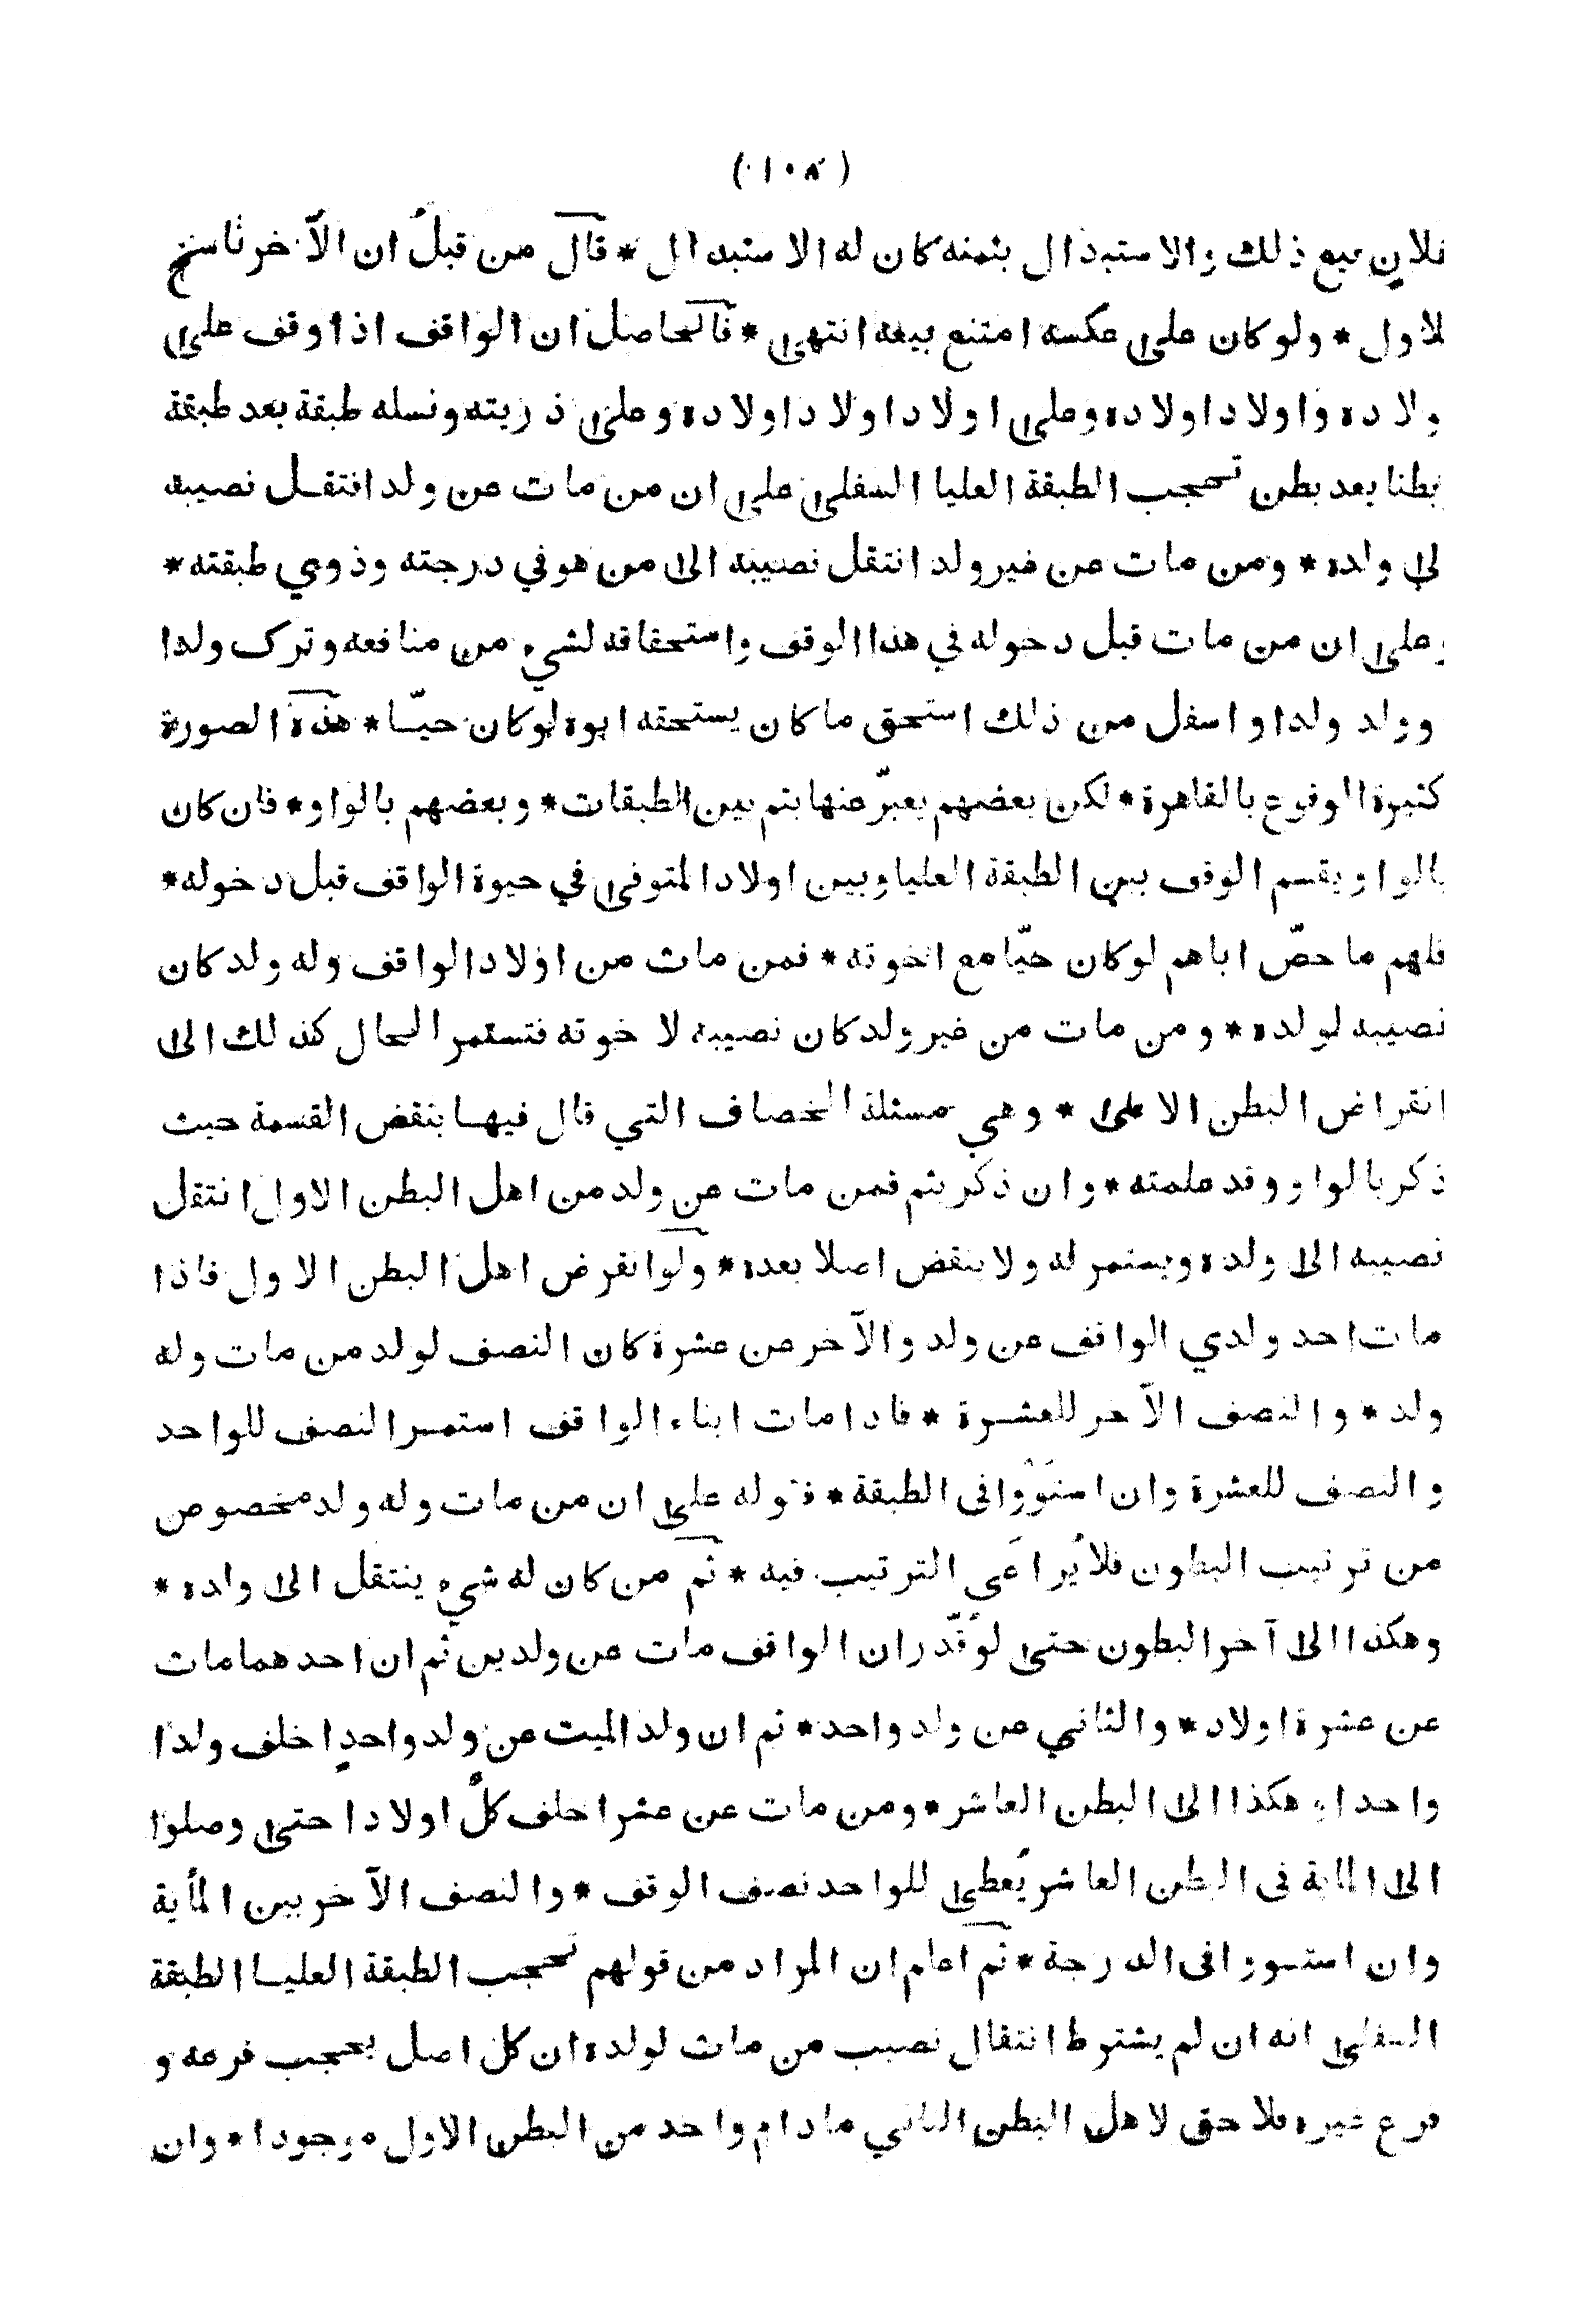 (١٠٨)
فلان بيع ذلك والاستبدال بثمنه كان له الاستبدال * قال من قبل ان الآخر ناسخ
للاول * ولو كان على عكسه امتنع بيعه انتهى * فالحاصل ان الواقف اذا وقف على
ولاده واولاد اولاده وعلى اولاد اولاد اولاده وعلى ذريته ونسله طبقة بعد طبقة
بطنا بعد بطن تحجب الطبقة العليا السفلى على ان من مات عن ولد انتقل نصيبه
لى ولده * ومن مات عن غير ولد انتقل نصيبه الى من هو في درجته وذوي طبقته *
وعلى ان من مات قبل دخوله في هذا الوقف واستحقاقه لشيء من منافعه وترك ولدا
وولد ولد او اسفل من ذلك استحق ما كان يستحقه ابوه لو كان حيّا * هذه الصورة
كثيرة الوقوع بالقاهرة * لكن بعضهم يعبّر عنها بثم بين الطبقات * وبعضهم بالواو * فان كان
بالواو يقسم الوقف بين الطبقة العليا وبين اولاد المتوفى في حيوة الواقف قبل دخوله *
فلهم ما خصّ اباهم لو كان حيّا مع اخوته * فمن مات من اولاد الواقف وله ولد كان
نصيبه لولده * ومن مات من غير ولد كان نصيبه لاخوته فتستمر الحال كذلك الى
انقراض البطن الاعلى * وهي مسئلة الخصاف التي قال فيها بنقض القسمة حيث
ذكر بالواو وقد علمته * وان ذكر بثم فمن مات عن ولد من اهل البطن الاول انتقل
نصيبه الى ولده ويستمر له ولا ينقض اصلا بعده * ولو انقرض اهل البطن الاول فاذا
مات احد ولدي الواقف عن ولد والآخر عن عشرة كان النصف لولد من مات وله
ولد * والنصف الآخر للعشرة * فاذا مات ابناء الواقف استمر النصف للواحد
والنصف للعشرة وان استَوَوْا فى الطبقة * فقوله على ان من مات وله ولد مخصوص
من ترتيب البطون فلا يُراعَى الترتيب فيه * ثم من كان له شيء ينتقل الى ولده *
وهكذا الى آخر البطون حتى لو قُدّر ان الواقف مات عن ولدين ثم ان احدهما مات
عن عشرة اولاد * والثاني عن ولد واحد * ثم ان ولد الميت عن ولد واحدٍ خلف ولدا
واحدا وهكذا الى البطن العاشر * ومن مات عن عشر اخلف كلٌّ اولادا حتى وصلوا
الى الماية فى البطن العاشر يُعطى للواحد نصف الوقف * والنصف الآخر بين المأية
وان استووا فى الدرجة * ثم اعلم ان المراد من قولهم تحجب الطبقة العليا الطبقة
السفلى انه ان لم يشترط انتقال نصيب من مات لولده ان كل اصل يحجب فرعه و
فرع غيره فلا حق لاهل البطن الثاني ما دام واحد من البطن الاول موجودا * وان